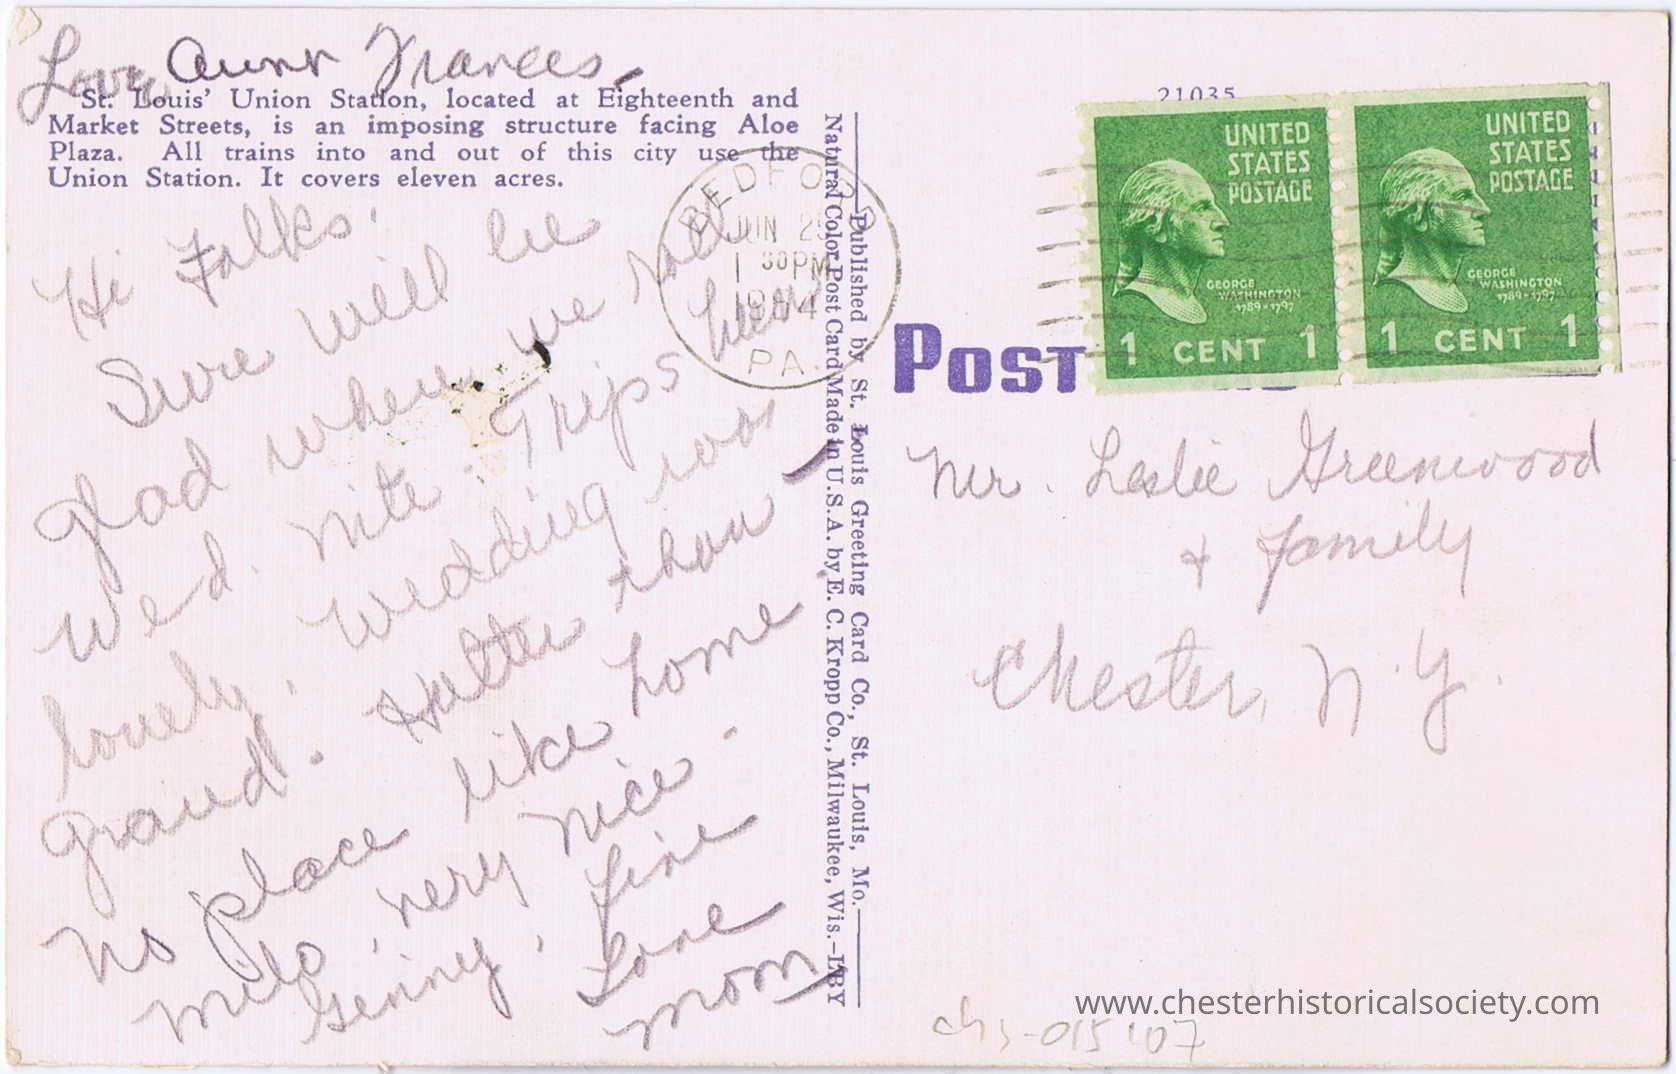 Love, Aunt Frances.
St. Louis' Union Station, located at Eighteenth and
Market Streets, is an imposing structure facing Aloe
Plaza. All trains into and out of this city use the
Union Station. It covers eleven acres.
Hi Folks:
Sure will be
glad when we roll
Wed. nite. Trips been
lovely. Wedding was
grand. Hotter than
No place like home
Milo, very nice.
Genny, fine
Love
Mom
BEDFORD
JUN 29
1 30 PM
PA.
Published by St. Louis Greeting Card Co., St. Louis, Mo.
Natural Color Post Card Made in U.S.A. by E. C. Kropp Co., Milwaukee, Wis.
21035
UNITED
STATES
POSTAGE
GEORGE
WASHINGTON
1789-1797
1 CENT 1
UNITED
STATES
POSTAGE
GEORGE
WASHINGTON
1789-1797
1 CENT 1
POST
Mr. Leslie Greenwood
+ family
Chester, N.Y.
www.chesterhistoricalsociety.com
chs-015107